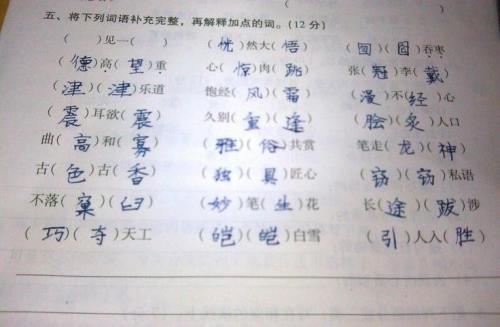 五、将下列词语补充完整,再解释加点的词。(12 分)
( )见一( ) (恍)然大(悟) (囫)(囵)吞枣
(德)高(望)重 心(惊)肉(跳) 张(冠)李(戴)
(津)(津)乐道 饱经(风)(霜) (漫)不(经)心
(震)耳欲(震) 久别(重)(逢) (脍)(炙)人口
曲(高)和(寡) (雅)(俗)共赏 笔走(龙)(神)
古(色)古(香) (独)(具)匠心 (窃)(窃)私语
不落(窠)(臼) (妙)笔(生)花 长(途)(跋)涉
(巧)(夺)天工 (皑)(皑)白雪 (引)人入(胜)